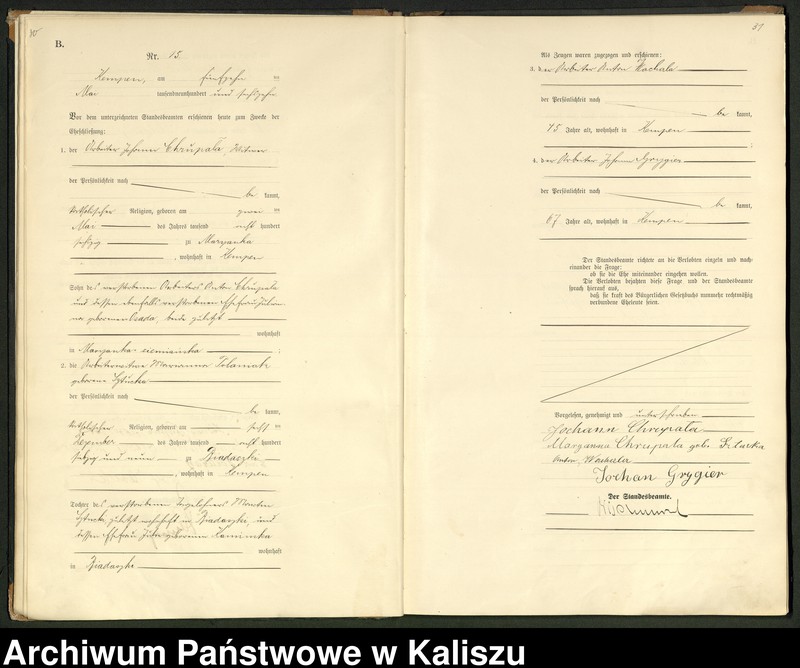 B.
Nr. 15.
Kempen, am fünfzehn ten
Mai tausendneunhundert und sechzehn
Vor dem unterzeichneten Standesbeamten erschienen heute zum Zwecke der
Eheschließung:
1. der Arbeiter Johann Chrupala, Witwer
der Persönlichkeit nach
be kannt,
katholischer Religion, geboren am zwei ten
Mai des Jahres tausend acht hundert
sechzig zu Maryanka
, wohnhaft in Kempen
Sohn des verstorbenen Arbeiters Anton Chrupala
und dessen ebenfalls verstorbenen Ehefrau
geborenen Osada, beide zuletzt
wohnhaft
in Maryanka siemianka
2. die Marianna
geborene
der Persönlichkeit nach
be kannt,
katholischer Religion, geboren am ten
Dezember des Jahres tausend acht hundert
und neun zu Biadaszki
, wohnhaft in Kempen
Tochter des verstorbenen
zuletzt wohnhaft in Biadaszki, und
dessen Ehefrau geborenen Kaminska
wohnhaft
in Biadaszki
87
Als Zeugen waren zugezogen und erschienen:
3. der Arbeiter Anton Wachala
der Persönlichkeit nach
be kannt,
75 Jahre alt, wohnhaft in Kempen
4. der Arbeiter Johann Grygier
der Persönlichkeit nach
be kannt,
67 Jahre alt, wohnhaft in Kempen
Der Standesbeamte richtete an die Verlobten einzeln und nach-
einander die Frage:
ob sie die Ehe miteinander eingehen wollen.
Die Verlobten bejahten diese Frage und der Standesbeamte
sprach hierauf aus,
daß sie kraft des Bürgerlichen Gesetzbuchs nunmehr rechtmäßig
verbundene Eheleute seien.
Vorgelesen, genehmigt und unterschrieben
Johann Chrupala
Maryanna Chrupala geb.
Anton Wachala
Johan Grygier
Der Standesbeamte.
Archiwum Państwowe w Kaliszu